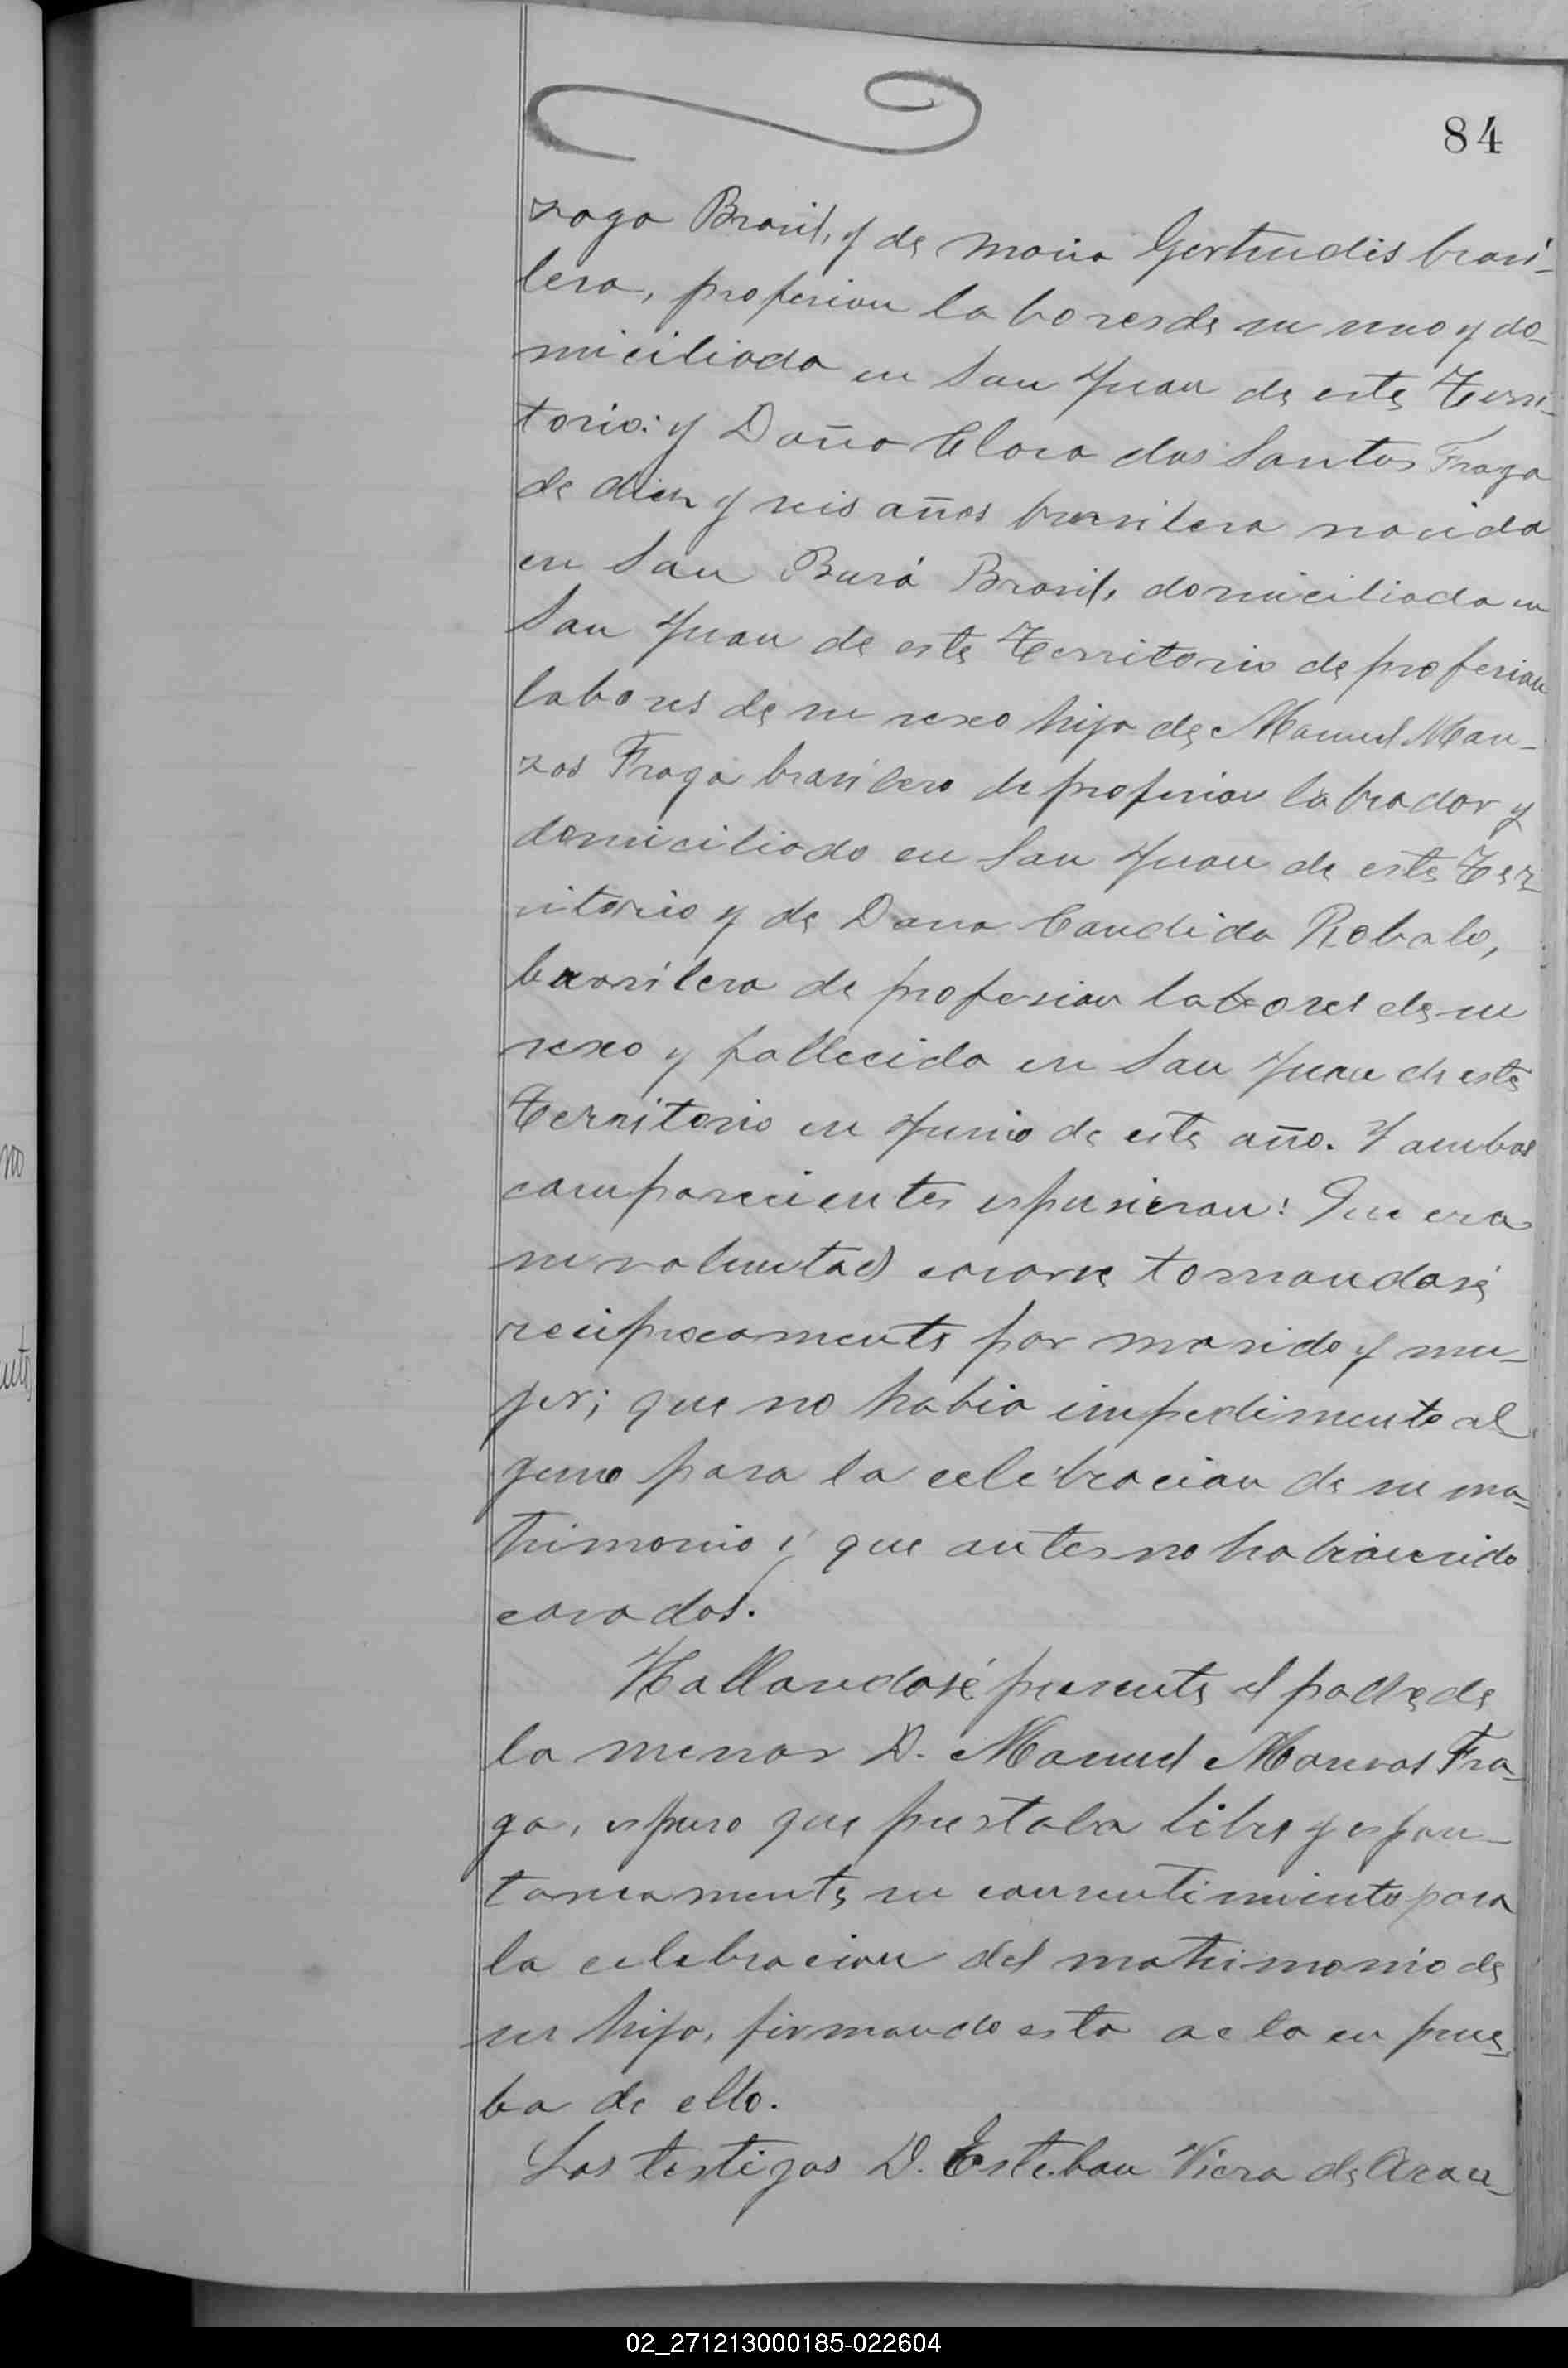 84
zaga Brasil, y de Maria Gertrudis brasi-
lera, profesion labores de su sexo y do-
miciliada en San Juan de este Terri-
torio: y Doña Clara dos Santos Fraga
de diez y seis años brasilera nacida
en San Burá Brasil, domiciliada en
San Juan de este Territorio de profesion
labores de su sexo hija de Manuel Mar-
zos Fraga brasilero de profesion labrador y
domiciliado en San Juan de este Ter-
ritorio y de Dana Candida Robalo,
brasilera de profesion labores de su
sexo y fallecida en San Juan de este
Territorio en Junio de este año. Y ambos
comparecientes espusieron: Que era
su voluntad casarse tomandosé
reciprocamente por marido y mu-
jer; que no habia impedimento al
guno para la celebracion de su ma-
trimonio y que antes no habian sido
casados.
Hallandosé presente el padre de
la menor D. Manuel Fra-
ga, espuso que prestaba libre y espon-
taneamente su consentimiento para
la celebracion del matrimonio de
su hija, firmando esta acta en prue-
ba de ello.
Los testigos D. Esteban Viera de Arau-
no
02_271213000185-022604